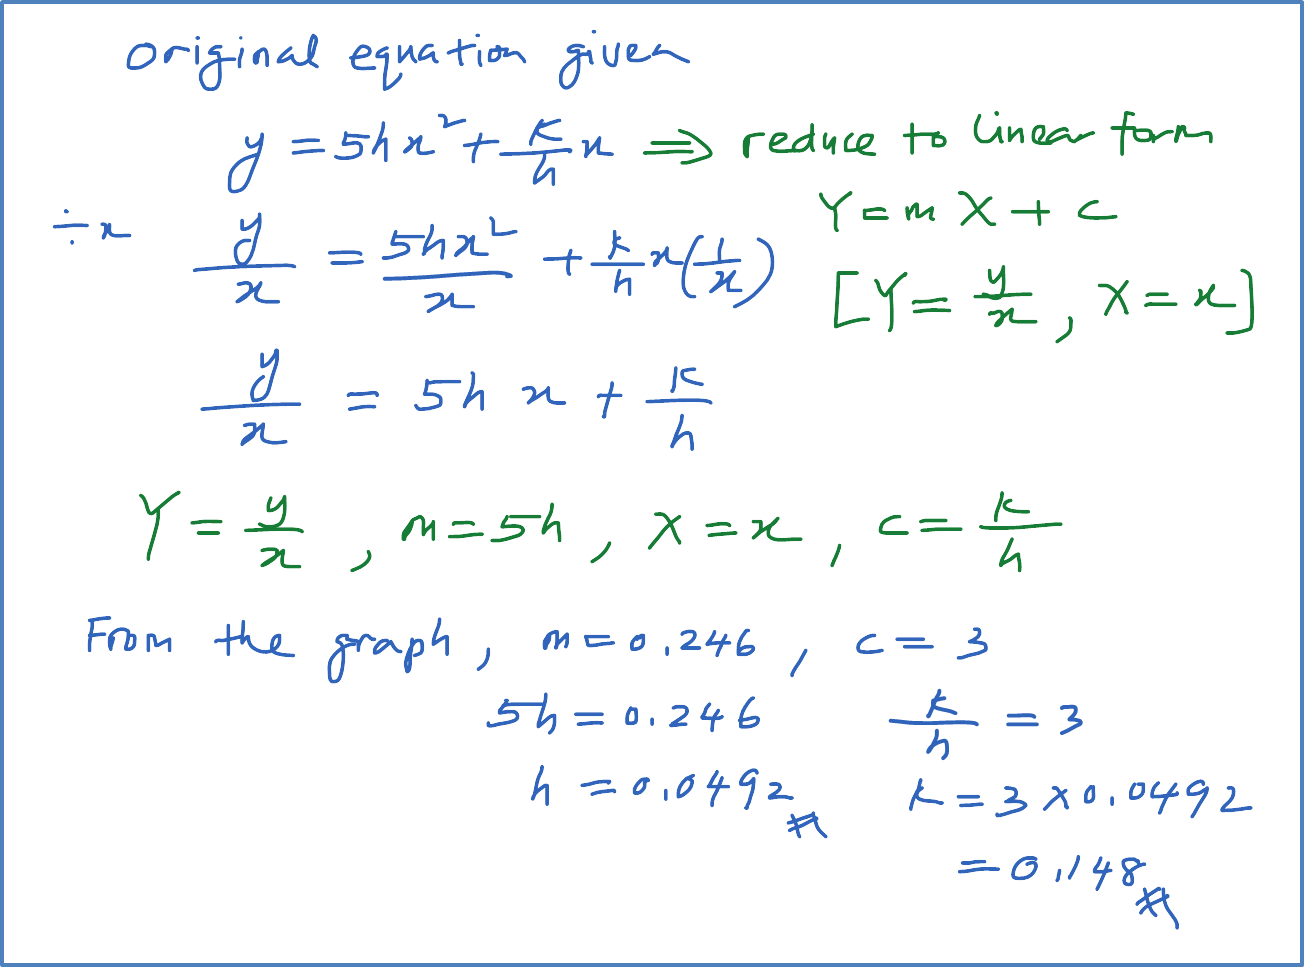 original equation given
y = 5hx² + k/h x ⇒ reduce to linear form
Y = m X + c
÷x y/x = 5hx²/x + k/h x(1/x)
[Y = y/x, X = x]
y/x = 5h x + k/h
Y = y/x, m = 5h, X = x, c = k/h
From the graph, m = 0.246, c = 3
5h = 0.246 k/h = 3
h = 0.0492 # k = 3 × 0.0492
= 0.148 #